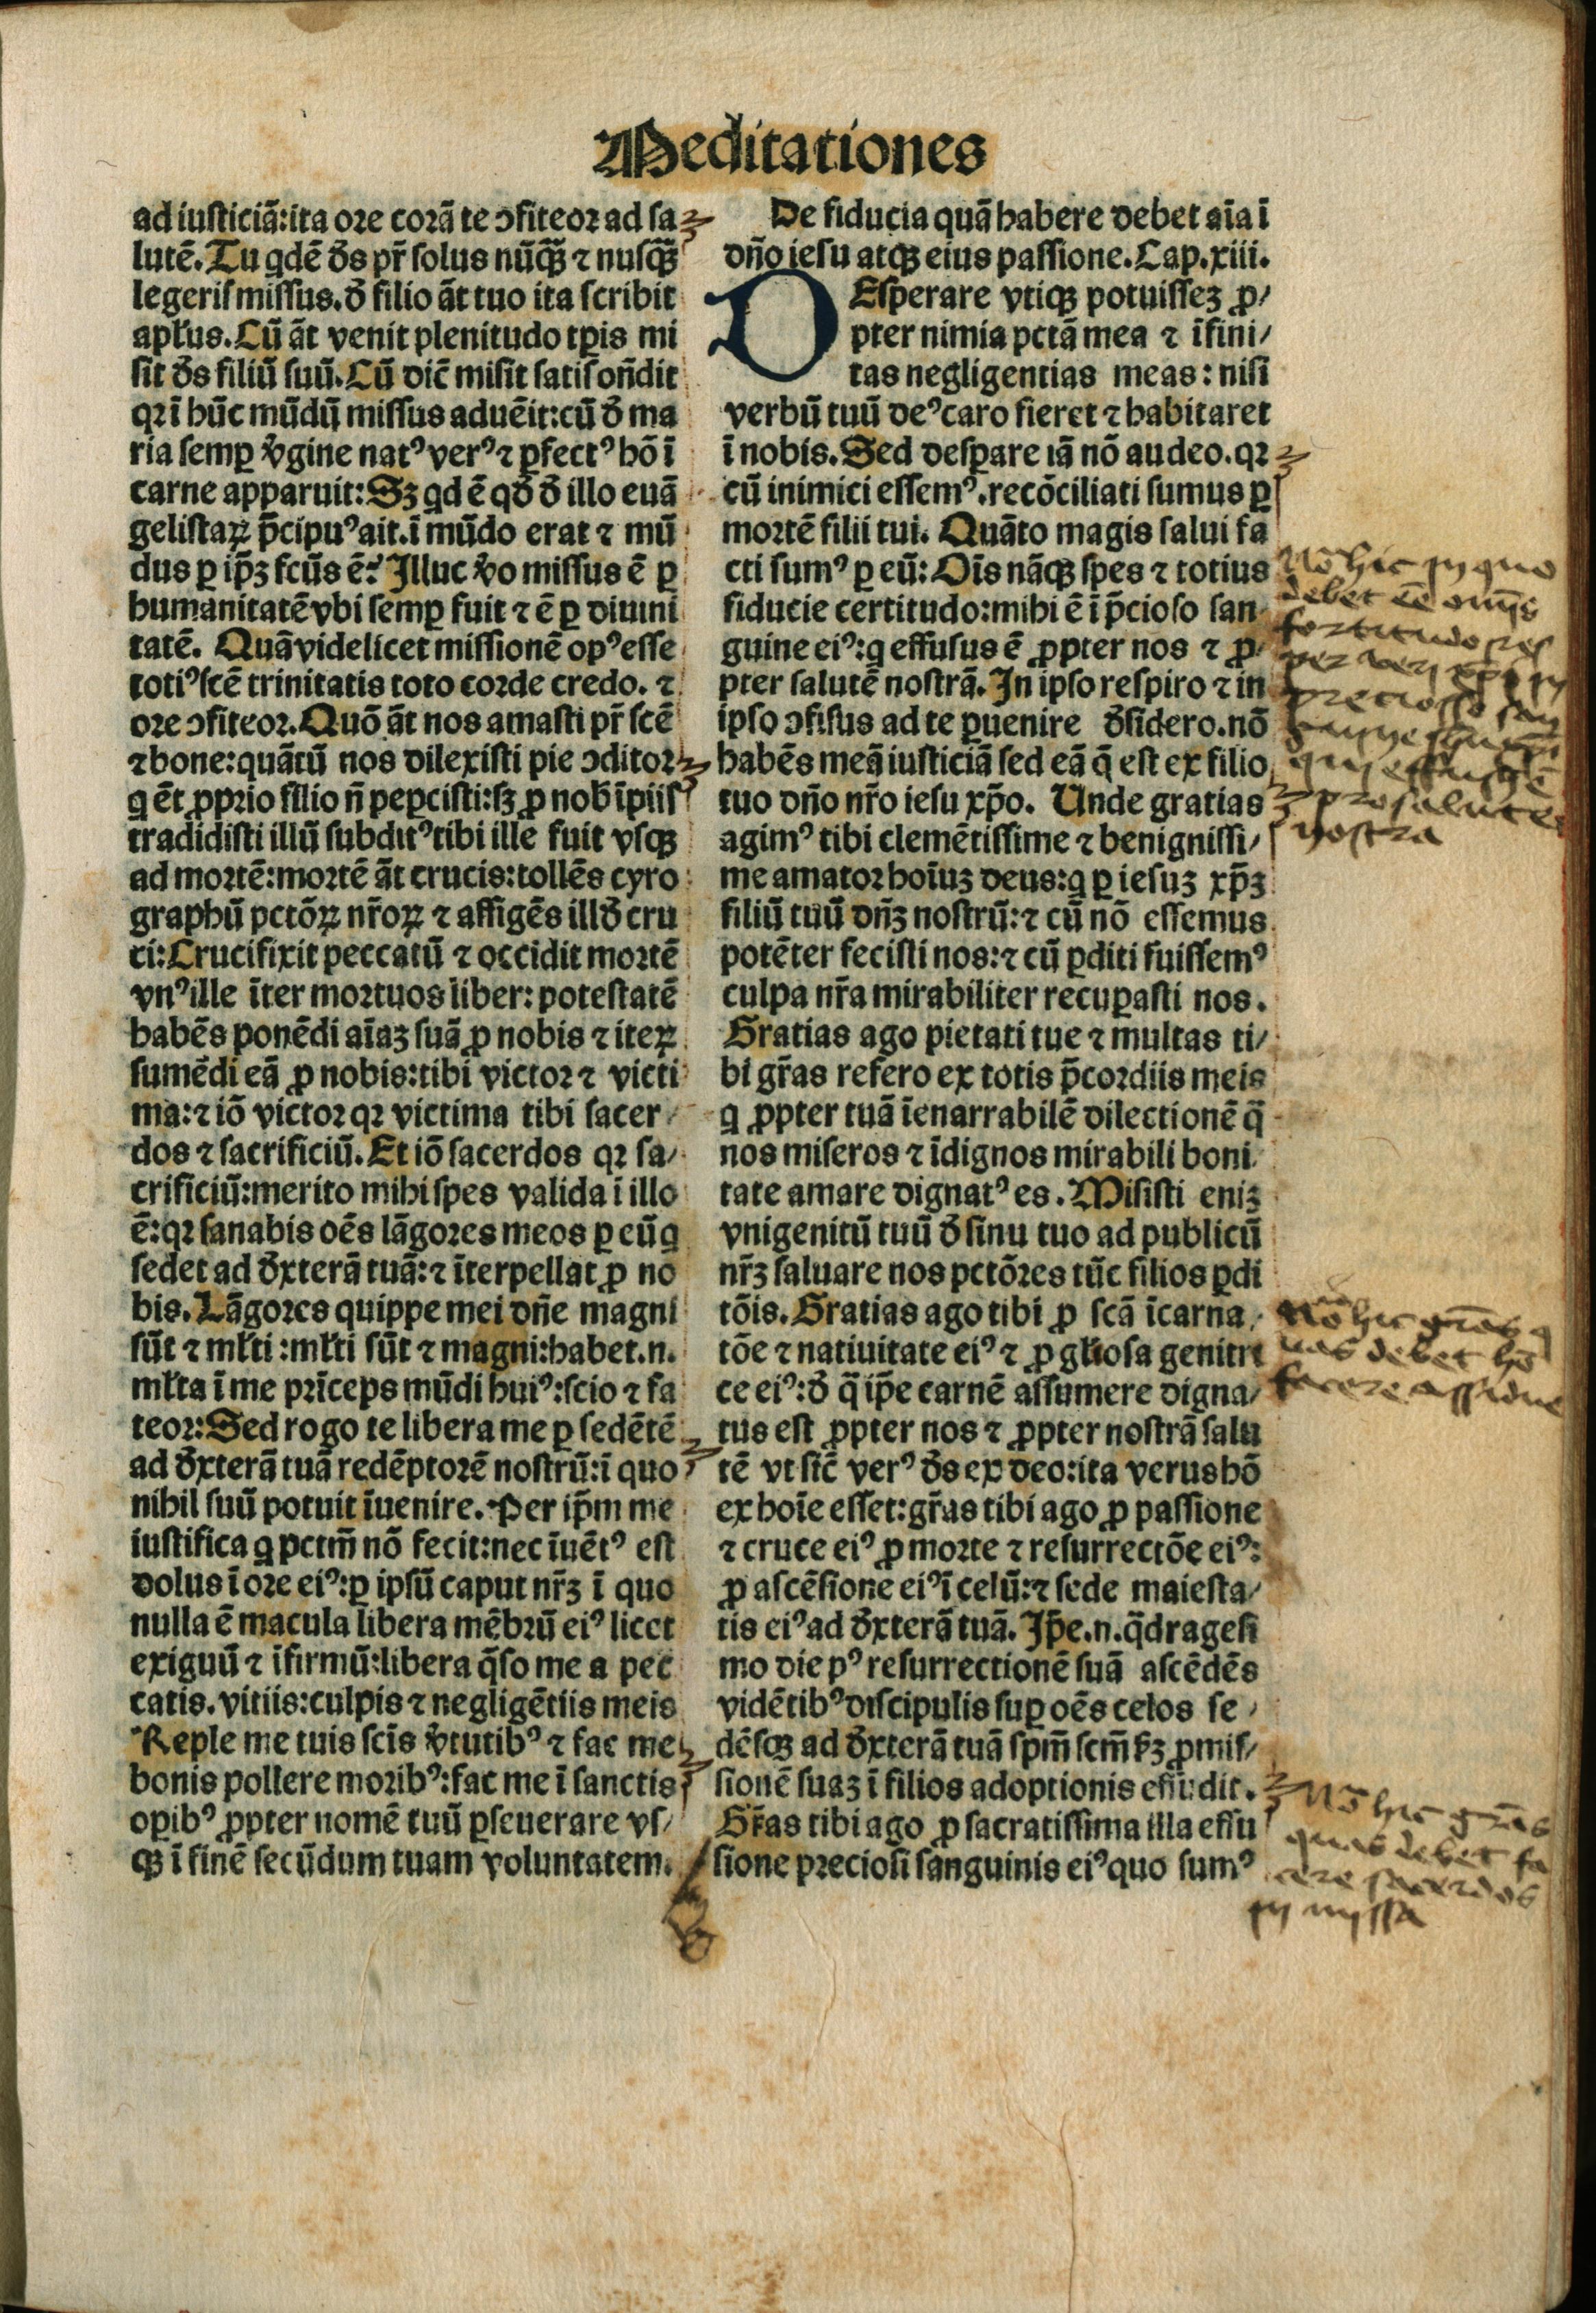 Meditationes
ad iusticiā:ita ore corā te ↄfiteor ad sa
lutē. Tu qdē ds̄ pr̄ solus nūqꝫ̄ ⁊ nusqꝫ̄
legeris missus. đ filio āt tuo ita scribit
apłus. Cū āt venit plenitudo tꝑis mi
sit ds̄ filiū suū. Cū dic̄ misit satis on̄dit
qꝛ ī hūc mūdū missus aduēit:cū đ ma
ria semꝑ v̄gine natꝰ verꝰ ⁊ ꝑfectꝰ hō ī
carne apparuit: Sꝫ qd ē qđ đ illo euā
gelistaꝝ p̄cipuꝰ ait. ī mūdo erat ⁊ mū
dus ꝑ ip̄ꝫ fcūs ē: Illuc v̄o missus ē ꝑ
humanitatē vbi semꝑ fuit ⁊ ē ꝑ diuini
tatē. Quā videlicet missionē opꝰ esse
totiꝰ scē trinitatis toto corde credo. ⁊
ore ↄfiteor. Quō āt nos amasti pr̄ scē
⁊ bone:quātū nos dilexisti pie ↄditor
q ēt ꝓprio filio n̄ peꝑcisti:sꝫ ꝓ nob̄ īpiis
tradidisti illū subditꝰ tibi ille fuit vsqꝫ
ad mortē:mortē āt crucis:tollēs cyro
graphū pctōꝝ nr̄oꝝ ⁊ affigēs illđ cru
ci: Crucifixit peccatū ⁊ occidit mortē
vnꝰ ille īter mortuos liber: potestatē
habēs ponēdi aīaꝫ suā ꝓ nobis ⁊ iteꝝ
sumēdi eā ꝓ nobis:tibi victor ⁊ victi
ma:⁊ iō victor qꝛ victima tibi sacer/
dos ⁊ sacrificiū. Et iō sacerdos qꝛ sa/
crificiū:merito mihi spes valida ī illo
ē:qꝛ sanabis oēs lāgores meos ꝑ eū q
sedet ad đxterā tuā:⁊ īterpellat ꝓ no
bis. Lāgores quippe mei dn̄e magni
sūt ⁊ młti :młti sūt ⁊ magni:habet.n.
młta ī me prīceps mūdi huiꝰ:scio ⁊ fa
teor: Sed rogo te libera me ꝑ sedētē
ad đxterā tuā redēptorē nostrū:ī quo
nihil suū potuit īuenire. Per ip̄m me
iustifica q pctm̄ nō fecit:nec īuētꝰ est
dolus ī ore eiꝰ:ꝑ ipsū caput nr̄ꝫ ī quo
nulla ē macula libera mēbrū eiꝰ licet
exiguū ⁊ īfirmū:libera q̄so me a pec
catis. vitiis:culpis ⁊ negligētiis meis
Reple me tuis scīs v̄tutibꝰ ⁊ fac me
bonis pollere moribꝰ:fac me ī sanctis
opibꝰ ꝓpter nomē tuū ꝑseuerare vs/
qꝫ ī finē secūdum tuam voluntatem.
De fiducia quā habere debet aīa ī
dn̄o iesu atqꝫ eius passione. Cap. xiii.
DEsperare vtiqꝫ potuisseꝫ ꝓ/
pter nimia pctā mea ⁊ īfini/
tas negligentias meas: nisi
verbū tuū deꝰ caro fieret ⁊ habitaret
ī nobis. Sed desꝑare iā nō audeo. qꝛ
cū inimici essemꝰ. recōciliati sumus ꝑ
mortē filii tui. Quāto magis salui fa
cti sumꝰ ꝑ eū: Oīs nāqꝫ spes ⁊ totius
fiducie certitudo:mihi ē ī p̄cioso san
guine eiꝰ:q effusus ē ꝓpter nos ⁊ ꝓ/
pter salutē nostrā. In ipso respiro ⁊ in
ipso ↄfisus ad te ꝑuenire đsidero. nō
habēs meā iusticiā sed eā q̄ est ex filio
tuo dn̄o nr̄o iesu xp̄o. Unde gratias
agimꝰ tibi clemētissime ⁊ benignissi/
me amator hoīuꝫ deus:q ꝑ iesuꝫ xp̄ꝫ
filiū tuū dn̄ꝫ nostrū:⁊ cū nō essemus
potēter fecisti nos:⁊ cū ꝑditi fuissemꝰ
culpa nr̄a mirabiliter recuꝑasti nos.
Gratias ago pietati tue ⁊ multas ti/
bi gr̄as refero ex totis p̄cordiis meis
q ꝓpter tuā īenarrabilē dilectionē q̄
nos miseros ⁊ īdignos mirabili boni
tate amare dignatꝰ es. Misisti eniꝫ
vnigenitū tuū đ sinu tuo ad publicū
nr̄ꝫ saluare nos pctōres tūc filios ꝑdi
tōis. Gratias ago tibi ꝓ scā īcarna/
tōe ⁊ natiuitate eiꝰ ⁊ ꝓ głiosa genitri
ce eiꝰ:đ q̄ ip̄e carnē assumere digna/
tus est ꝓpter nos ⁊ ꝓpter nostrā salu
tē vt sic̄ verꝰ ds̄ ex deo:ita verus hō
ex hoīe esset:gr̄as tibi ago ꝓ passione
⁊ cruce eiꝰ ꝓ morte ⁊ resurrectōe eiꝰ:
ꝓ ascēsione eiꝰ ī celū:⁊ sede maiesta/
tis eiꝰ ad đxterā tuā. Ip̄e.n.q̄dragesi
mo die pꝰ resurrectionē suā ascēdēs
vidētibꝰ discipulis suꝑ oēs celos se/
dēsqꝫ ad đxterā tuā spm̄ scm̄ ꝃꝫ ꝓmis/
sionē suaꝫ ī filios adoptionis effudit.
Gr̄as tibi ago ꝓ sacratissima illa effu
sione preciosi sanguinis eiꝰ quo sumꝰ
Nō hic in quo
debet eē omīs
fortitudo spes
precioso san
qui effusꝰ ē
pro salute
nostra
Nō hic grās q
uas debet hō
facere assidue
Nō hic grās
quas debet fa
cere sacerdos
in missa